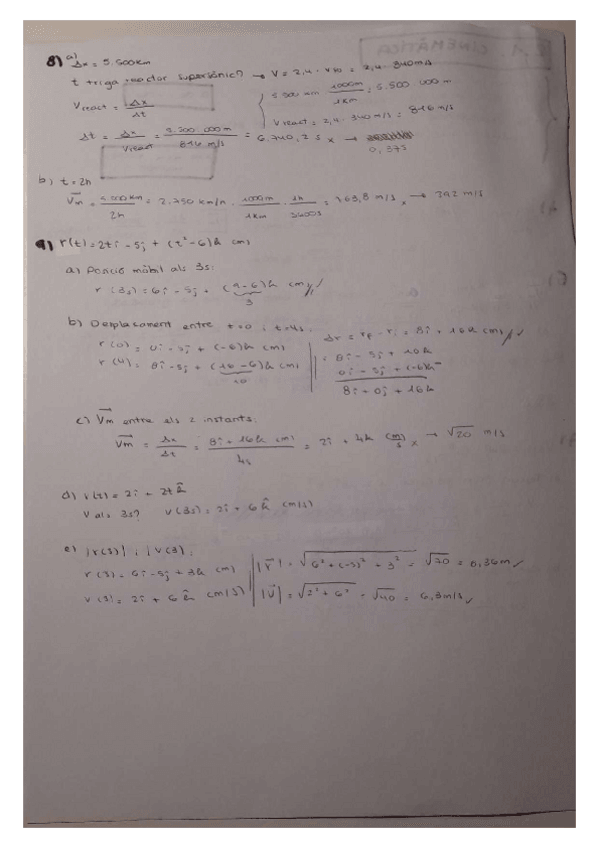 8) a) Δx = 5.500km
t triga reactor supersònic? → V = 2,4 · v so = 2,4 · 340m/s
V react = Δx / Δt
5.500 km · 1000m / 1km = 5.500 000 m
V react = 2,4 · 340 m/s = 816 m/s
Δt = Δx / V react = 5.500.000m / 816 m/s = 6.740,2 s x →
0,375
b) t = 2h
Vm = km / 2h = 2.750 km/h · 1000m / 1km · 1h / 3600s = 763,8 m/s x → 392 m/s
9) r(t) = 2ti - 5j + (t² - 6)k cm)
a) Posició mòbil als 3s:
r (3s) = 6i - 5j + (9-6)k cm)
3
b) Desplaçament entre t=0 i t=4s.
r (0) = 0i - 5j + (-6)k (m)
r (4) = 8i - 5j + (16-6)k (m)
10
Δr = rf - ri = 8i + 16k (m) ✓
8i - 5j + 10k
0i - 5j + (-6)k
8i + 0j + 16k
c) Vm entre els 2 instants:
Vm = Δx / Δt = 8i + 16k (m) / 4s = 2i + 4k (m/s) x → √20 m/s
d) v(t) = 2i + 2tk
V als 3s? v(3s) = 2i + 6k (m/s)
e) |r(3)| i |v(3)|
r(3) = 6i - 5j + 3k (m)
|r| = √6² + (-5)² + 3² = √70 = 8,36m ✓
v(3) = 2i + 6k (m/s)
|v| = √2² + 6² = √40 = 6,3m/s ✓